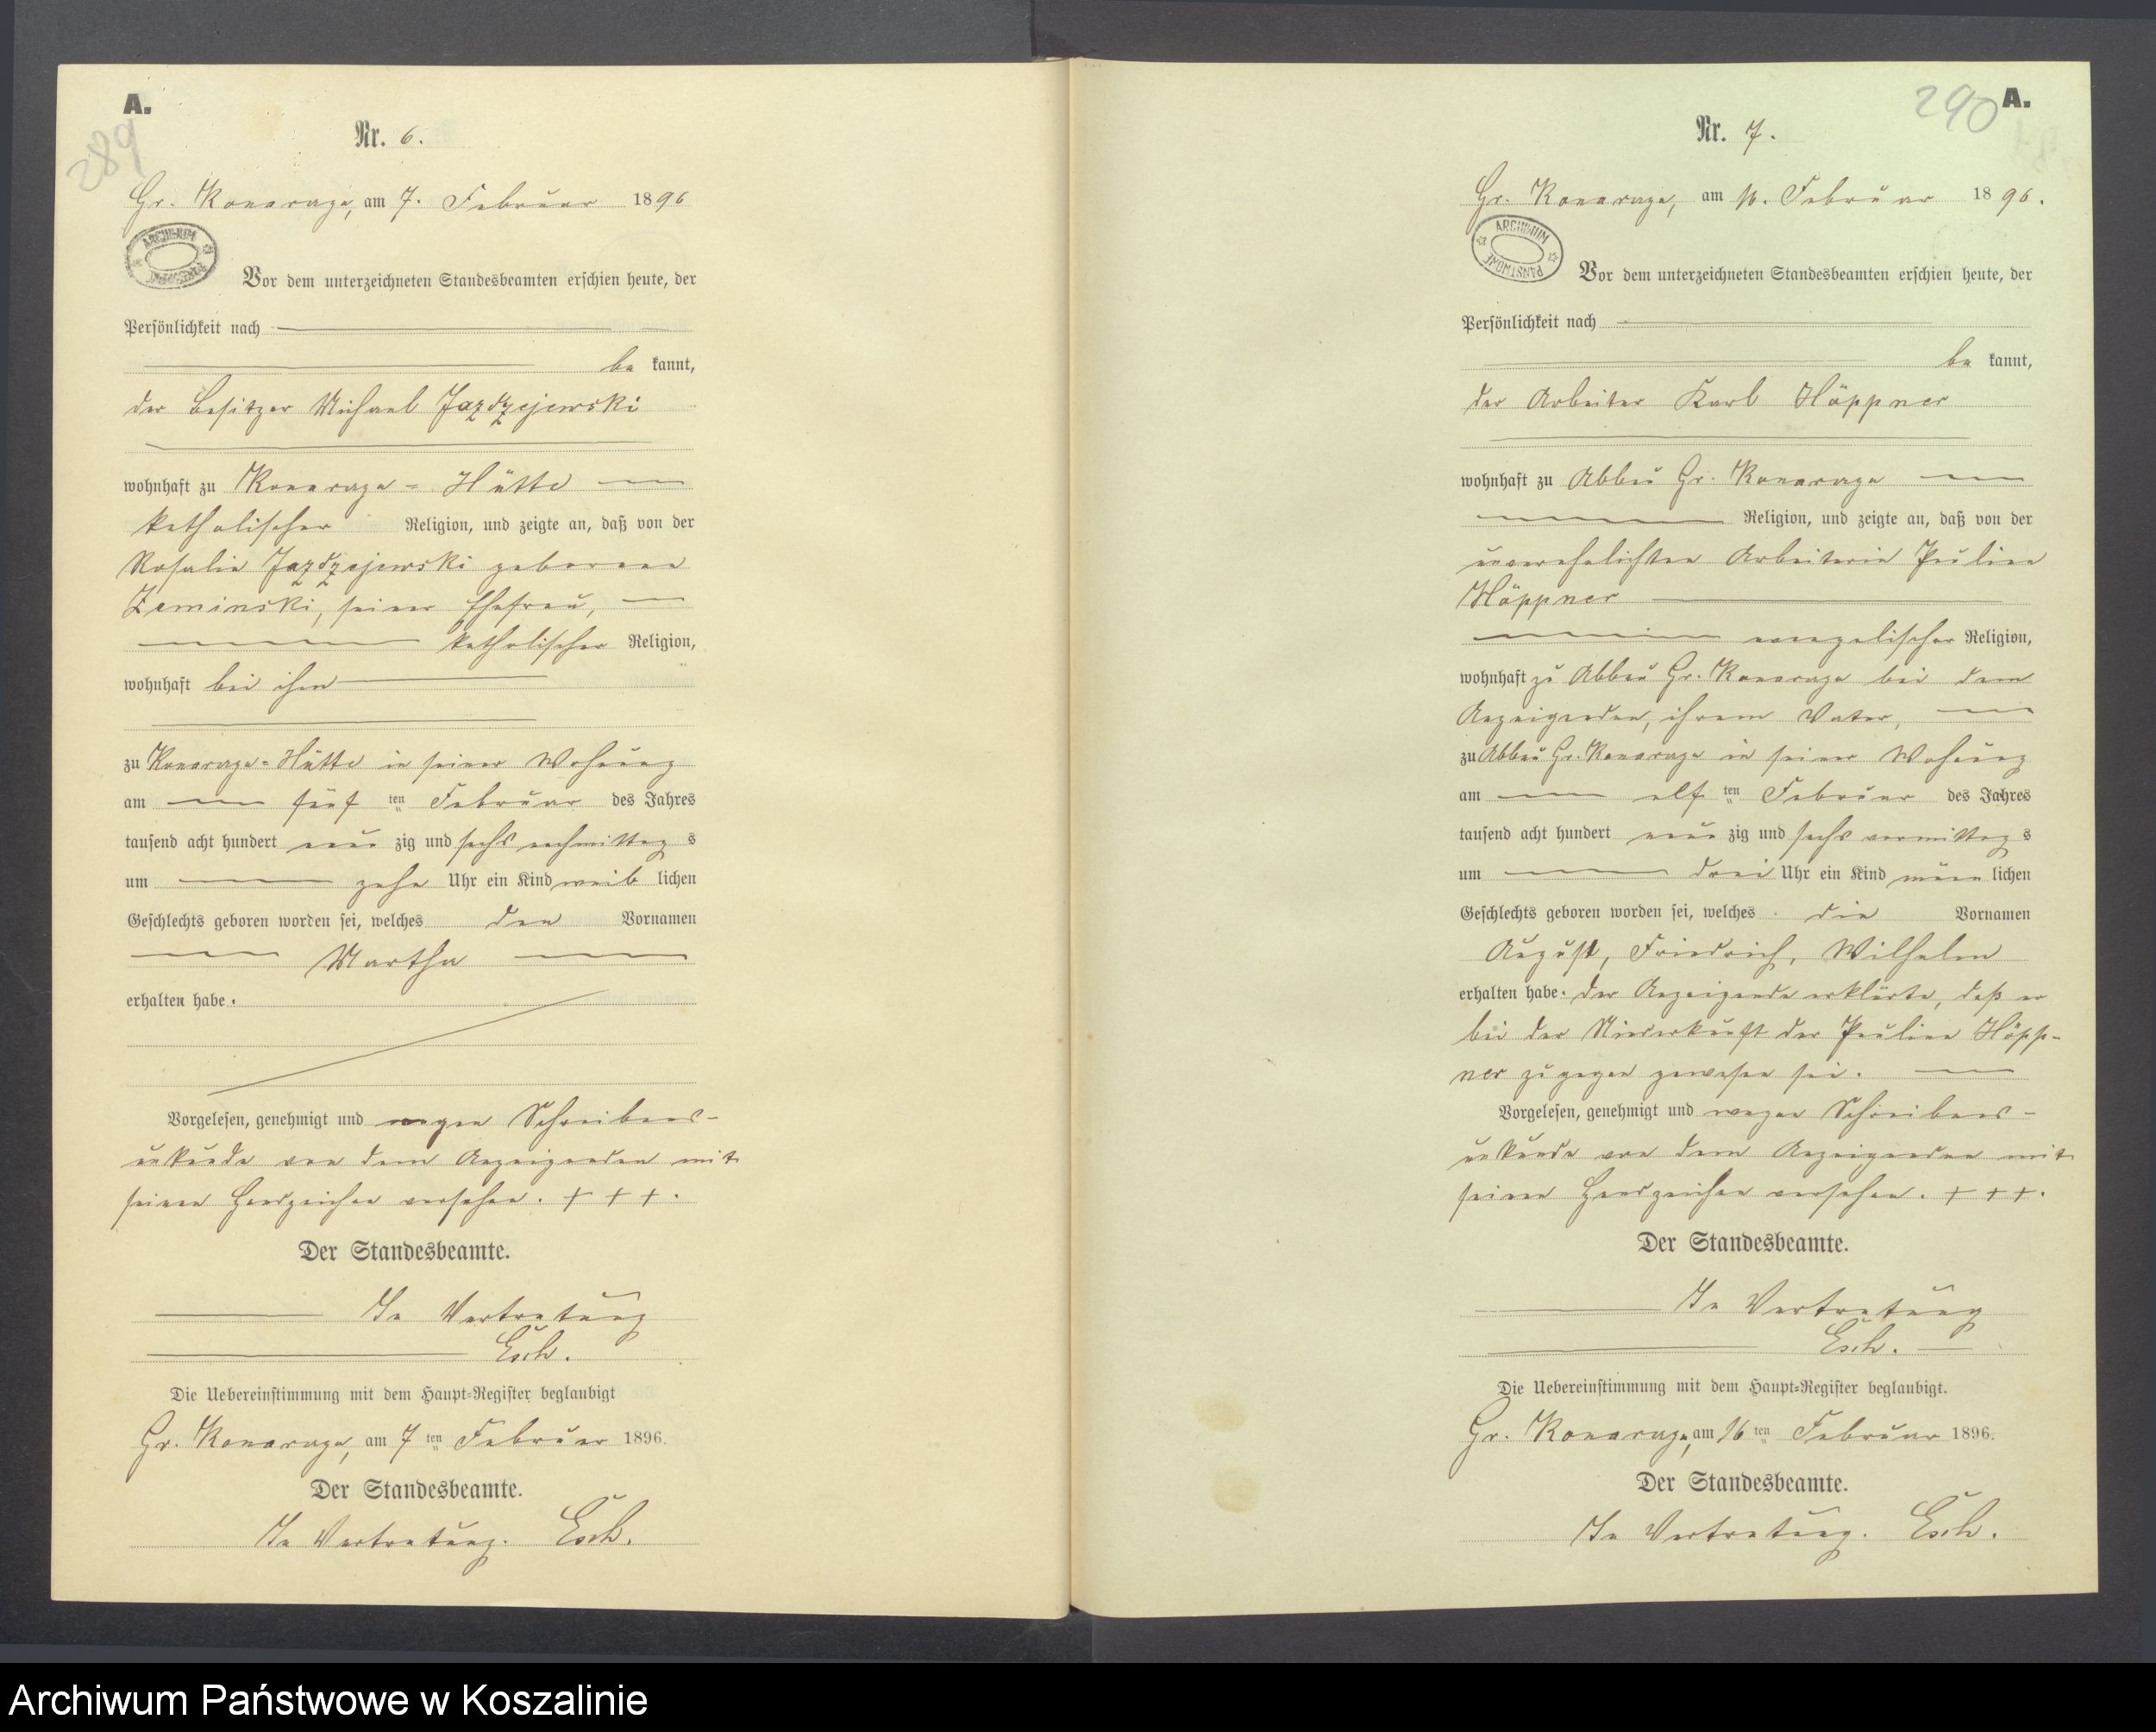 A.
289
Nr. 6.
Gr. Konarzyn, am 7. Februar 1896
ARCHIWUM PAŃSTWOWE
Vor dem unterzeichneten Standesbeamten erschien heute, der
Persönlichkeit nach
be kannt,
der Besitzer Michael Jazdzejewski
wohnhaft zu Konarzyn-Hütte
katholischer Religion, und zeigte an, daß von der
Rosalie Jazdzejewski geborene
Zeminski, seiner Ehefrau,
katholischer Religion,
wohnhaft bei ihm
zu Konarzyn-Hütte in seiner Wohnung
am fünf ten Februar des Jahres
tausend acht hundert neun zig und sechs nachmittag s
um zehn Uhr ein Kind weib lichen
Geschlechts geboren worden sei, welches den Vornamen
Martha
erhalten habe.
Vorgelesen, genehmigt und wegen Schreibens-
unkunde von dem Anzeigenden mit
seinen Handzeichen versehen. + + + .
Der Standesbeamte.
In Vertretung
Esch.
Die Uebereinstimmung mit dem Haupt-Register beglaubigt
Gr. Konarzyn, am 7 ten Februar 1896.
Der Standesbeamte.
In Vertretung. Esch.
290
A.
Nr. 7.
Gr. Konarzyn, am Februar 1896.
ARCHIWUM PAŃSTWOWE
Vor dem unterzeichneten Standesbeamten erschien heute, der
Persönlichkeit nach
be kannt,
der Arbeiter Karl Höppner
wohnhaft zu Abbau Gr. Konarzyn
Religion, und zeigte an, daß von der
unverehelichten Arbeiterin Pauline
Höppner
evangelischer Religion,
wohnhaft zu Abbau Gr. Konarzyn bei dem
Anzeigenden, ihrem Vater,
zu Abbau Gr. Konarzyn in seiner Wohnung
am elf ten Februar des Jahres
tausend acht hundert neun zig und sechs vormittag s
um drei Uhr ein Kind männ lichen
Geschlechts geboren worden sei, welches die Vornamen
August, Friedrich, Wilhelm
erhalten habe. Der Anzeigende erklärte, daß er
bei der Niederkunft der Pauline Höpp-
ner zugegen gewesen sei.
Vorgelesen, genehmigt und wegen Schreibens-
unkunde von dem Anzeigenden mit
seinen Handzeichen versehen. + + + .
Der Standesbeamte.
In Vertretung
Esch.
Die Uebereinstimmung mit dem Haupt-Register beglaubigt.
Gr. Konarzyn, am 16 ten Februar 1896.
Der Standesbeamte.
In Vertretung. Esch.
Archiwum Państwowe w Koszalinie